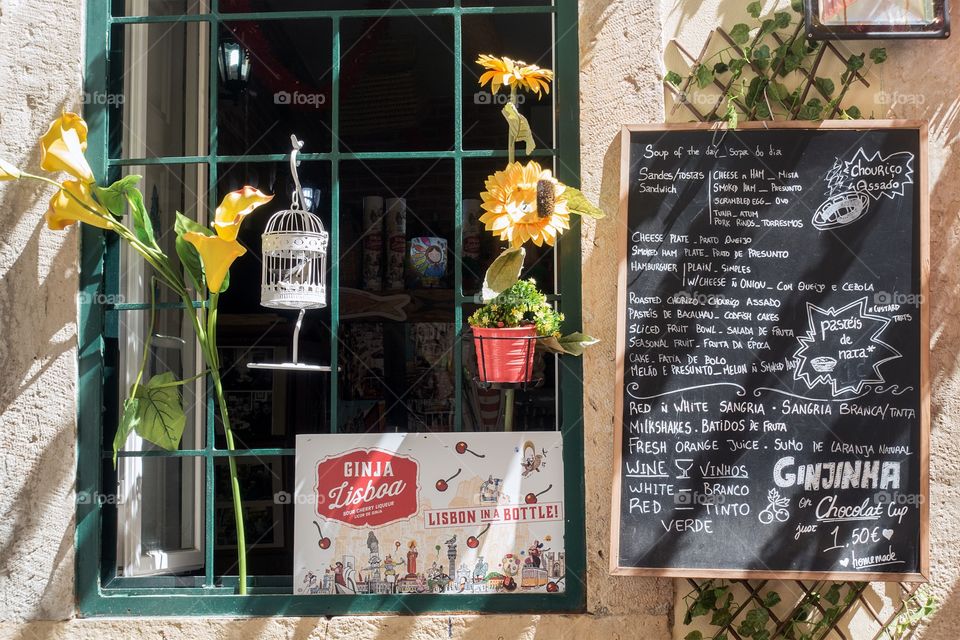 Soup of the day_ Sopa do dia
Sandes/tostas
Sandwich
Cheese n Ham _ Mista
Smoked Ham _ Presunto
Scrambled Egg _ Ovo
Tuna _ Atum
Pork Rinds _ Torresmos
Chouriço
Assado
Cheese Plate _ Prato Queijo
Smoked Ham Plate _ Prato de Presunto
Hamburguer | Plain _ Simples
w/Cheese ñ Onion _ Con Queijo e Cebola
Roasted Chorizo _ Chouriço Assado
Pastéis de Bacalhau _ Codfish Cakes
Sliced Fruit Bowl _ Salada de Fruta
Seasonal Fruit _ Fruta da Época
Cake _ Fatia de Bolo
Melão e Presunto _ Melon ñ Smoked Ham
* Custard
Tarts
Pastéis
de
nata*
Red ñ White Sangria • Sangria Branca/Tinta
Milkshakes • Batidos de Fruta
Fresh Orange Juice • Sumo de Laranja Natural
Wine Vinhos
White Branco
Red Tinto
Verde
Ginjinha
en Chocolat Cup
just 1.50€
homemade
GINJA
Lisboa
SOUR CHERRY LIQUEUR
LICOR DE GINJA
LISBON IN A BOTTLE!
foap
foap
foap
foap
foap
foap
foap
foap
foap
foap
foap
foap